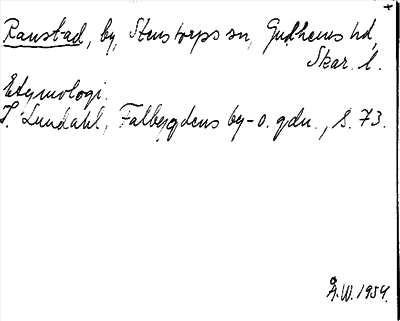 Ranstad, by, Stenstorps sn, Gudhems hd,
Skar. l.
Etymologi.
I. Lundahl, Falbygdens by- o. gdn., s. 73.
Å.W. 1954.